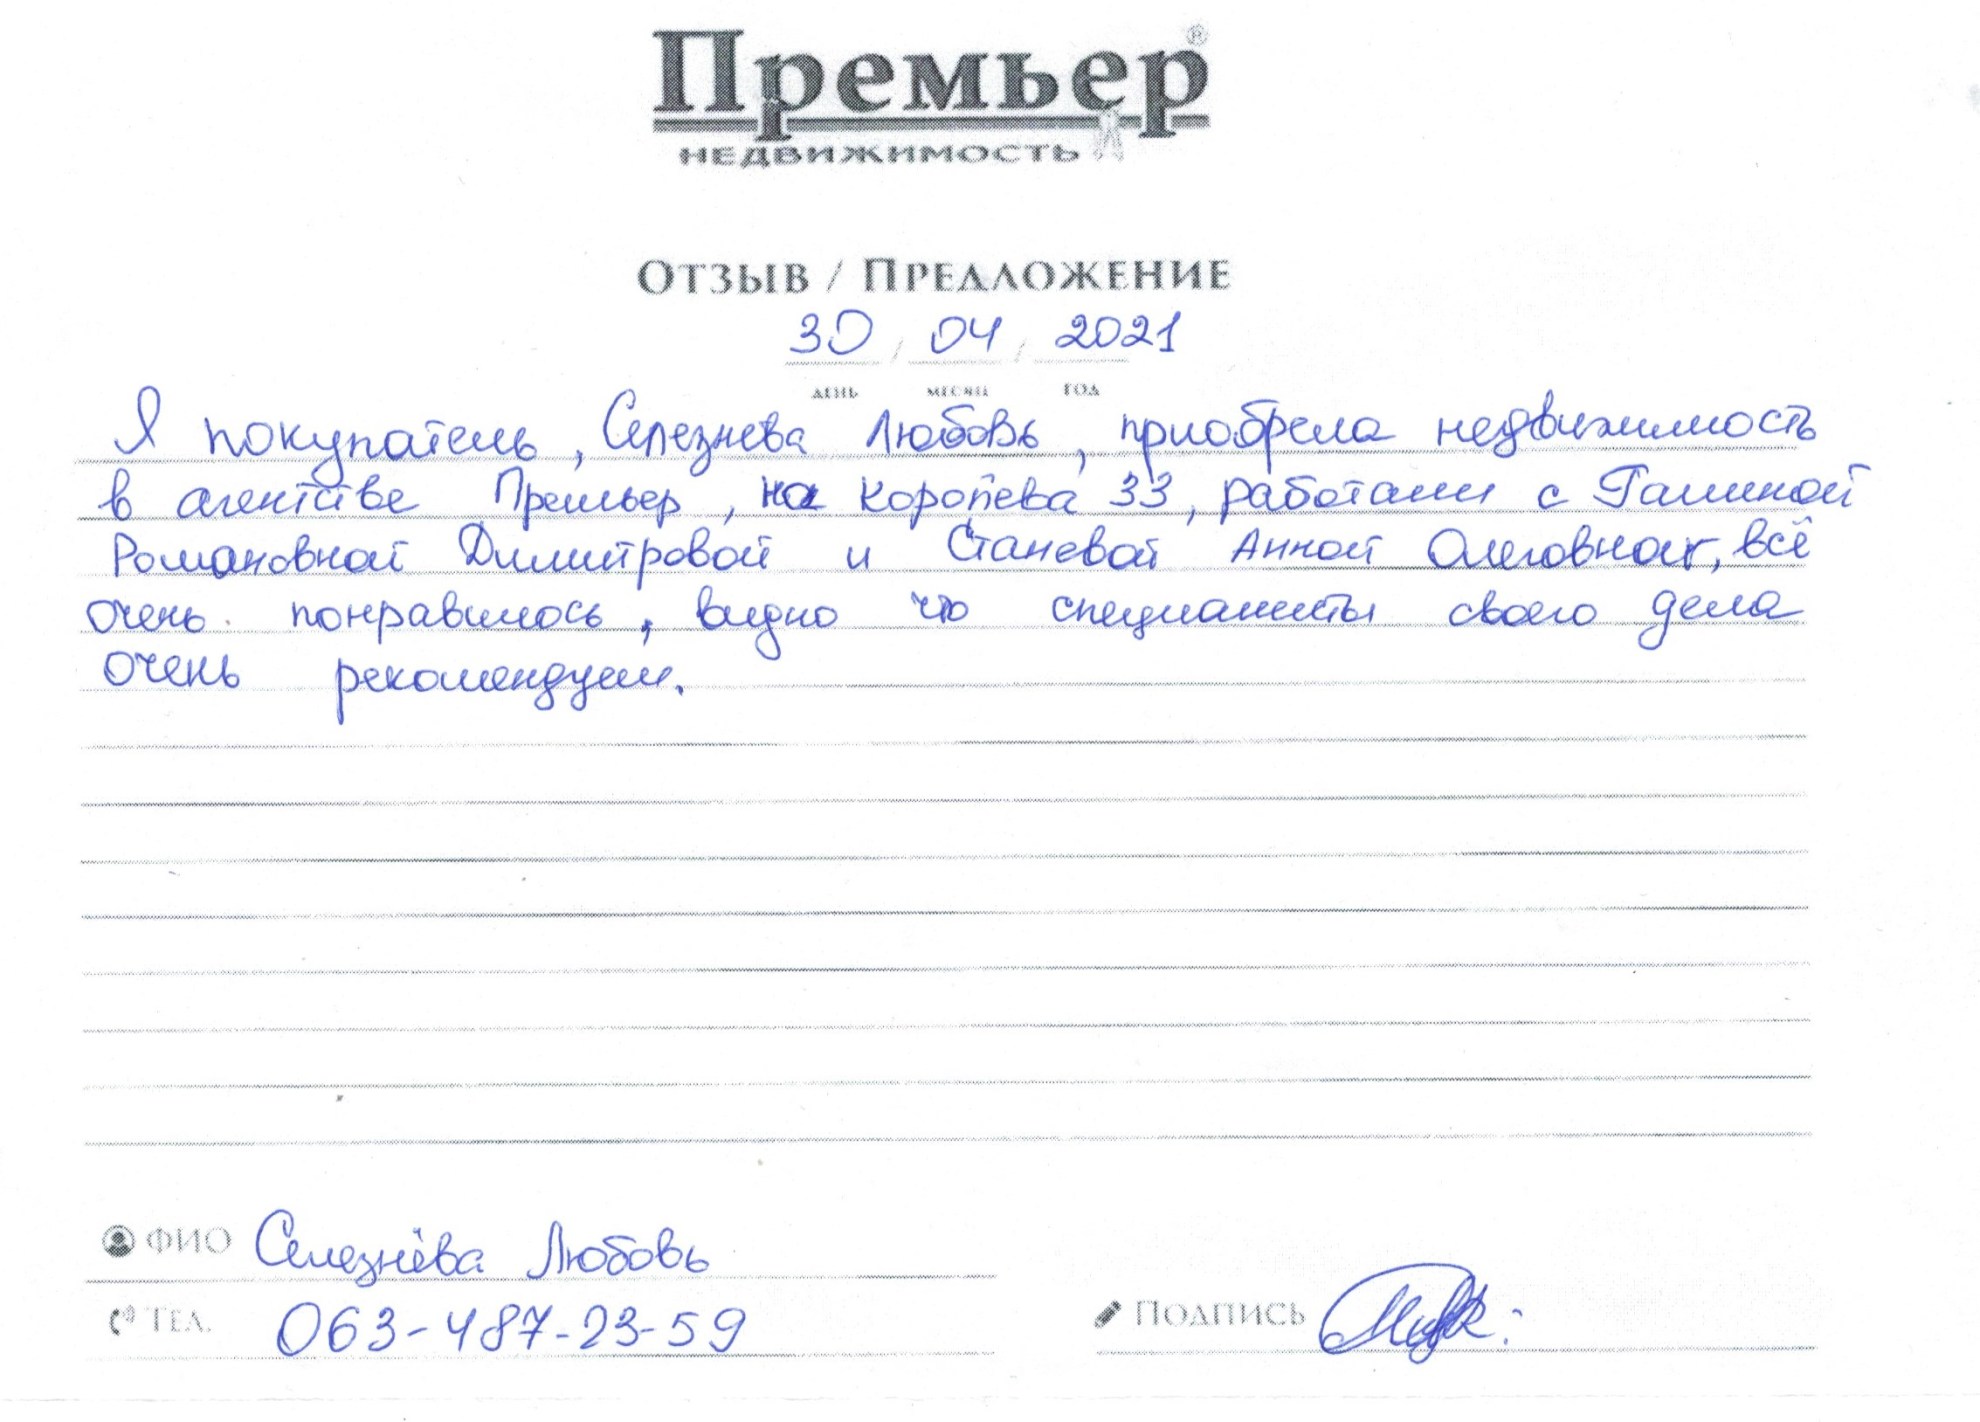 Премьер®
НЕДВИЖИМОСТЬ
ОТЗЫВ / ПРЕДЛОЖЕНИЕ
30 / 04 / 2021
ДЕНЬ МЕСЯЦ ГОД
Я покупатель, Селезнева Любовь, приобрела недвижимость
в агентстве Премьер, на Королева 33, работали с Галиной
Романовной Димитровой и Станевой Анной Олеговной, всё
очень понравилось, видно что специалисты своего дела
очень рекомендуем.
ФИО Селезнёва Любовь
ТЕЛ. 063-487-23-59
ПОДПИСЬ